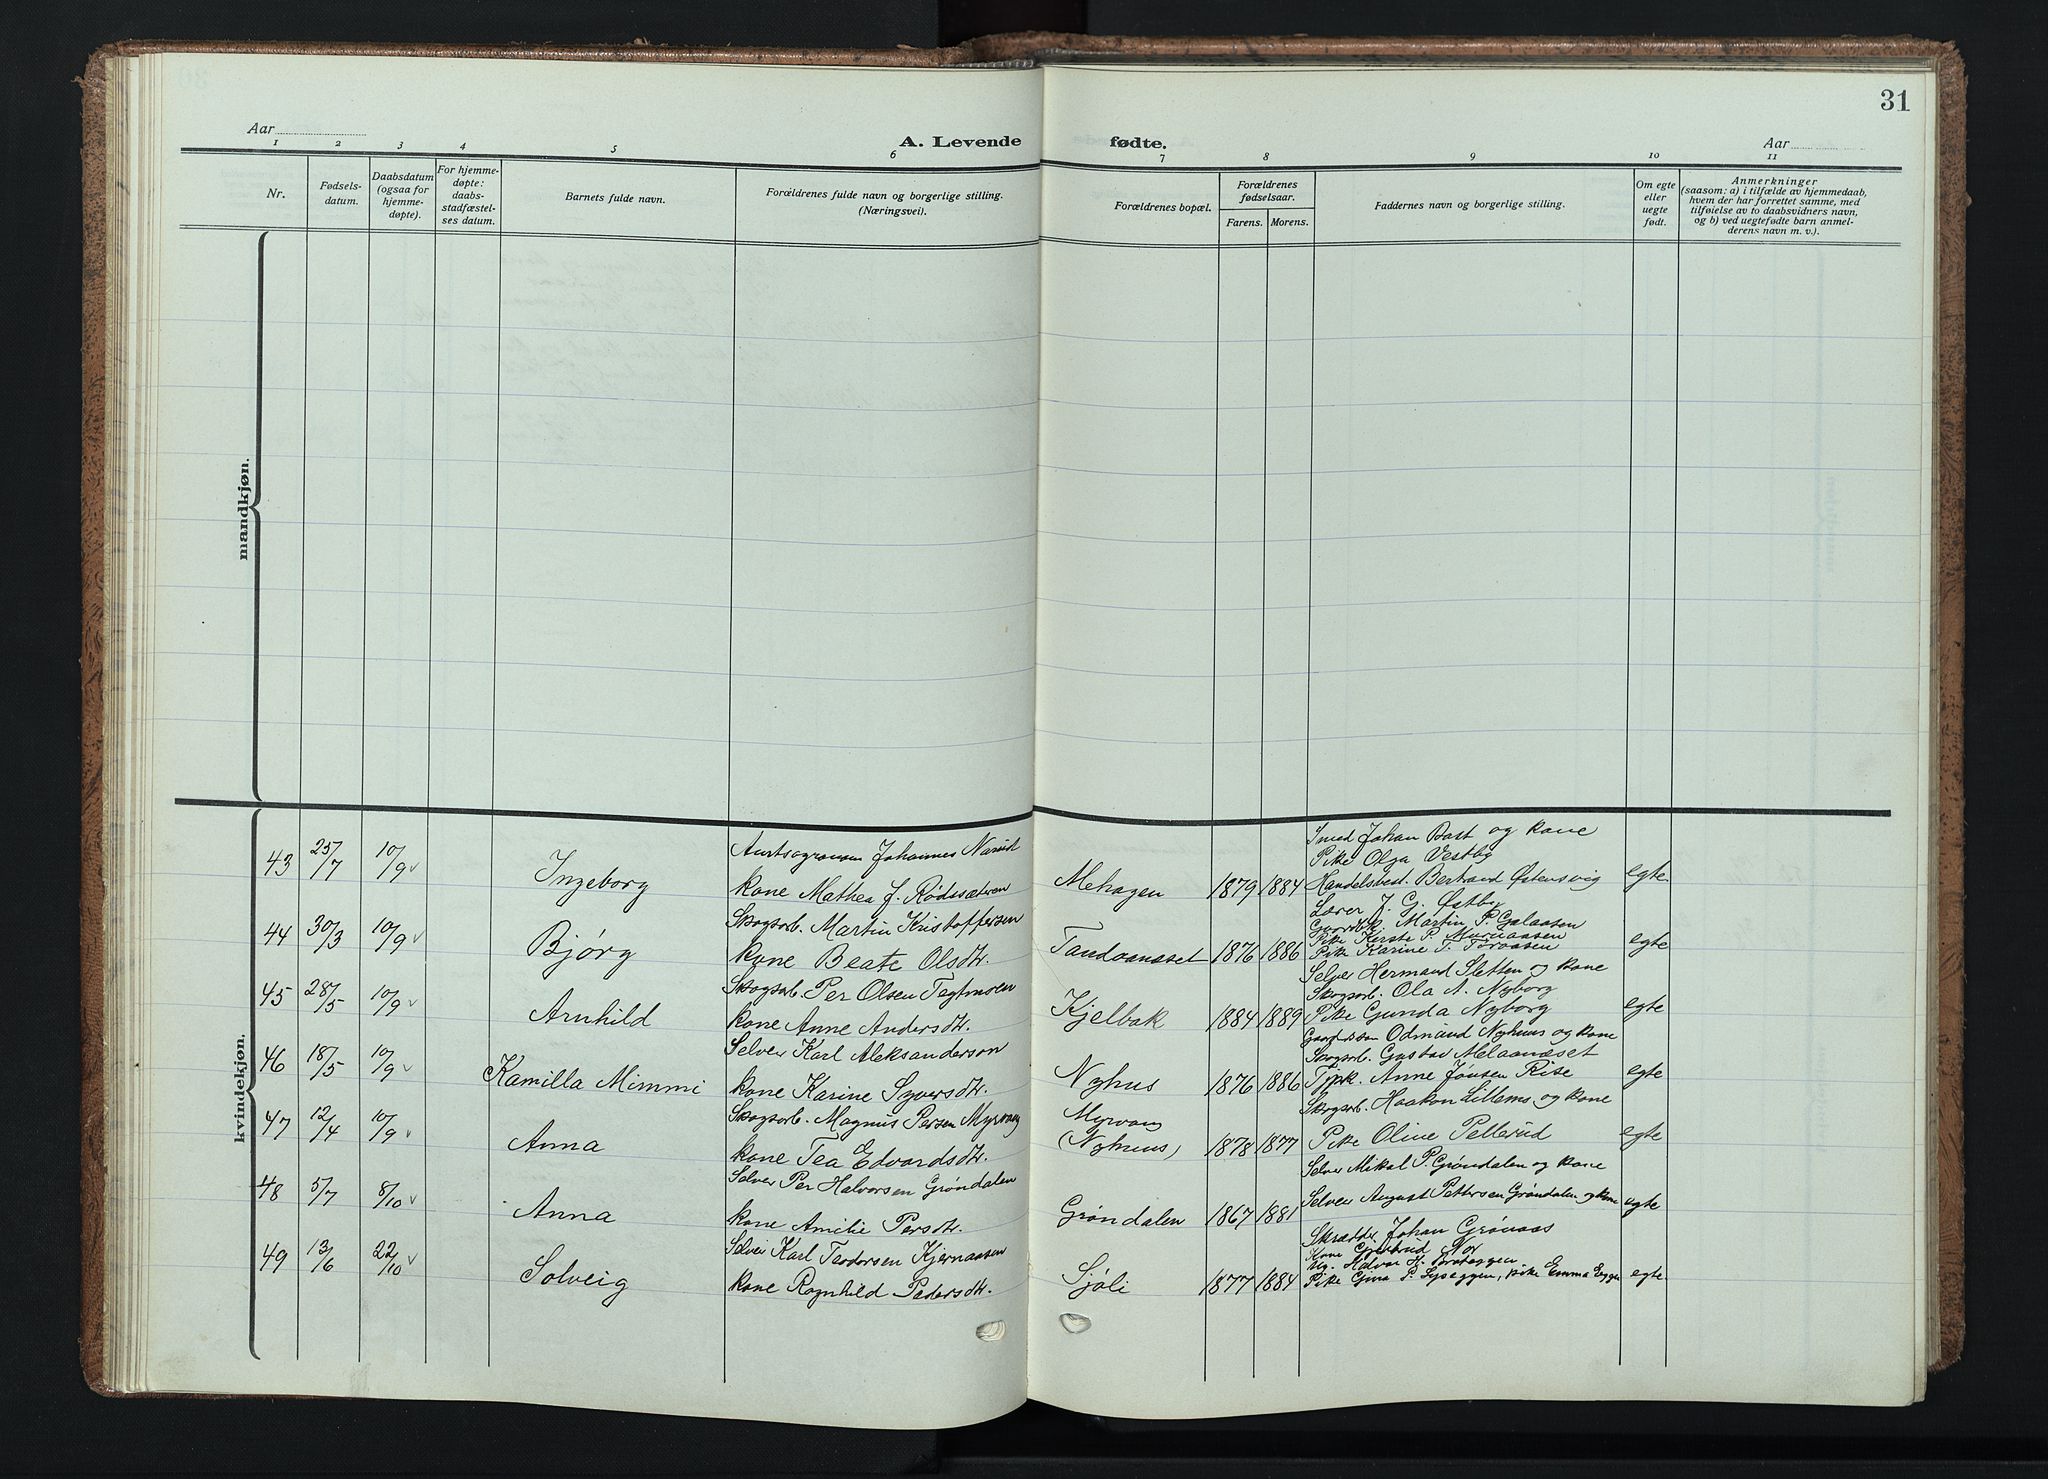 31
Aar
A. Levende fødte.
Aar
1 2 3 4 5 6 7 8 9 10 11
Nr.
Fødsels-
datum.
Daabsdatum
(ogsaa for
hjemme-
døpte).
For hjemme-
døpte:
daabs-
stadfæstel-
ses datum.
Barnets fulde navn.
Forældrenes fulde navn og borgerlige stilling.
(Næringsvei).
Forældrenes bopæl.
Forældrenes
fødselsaar.
Farens. Morens.
Faddernes navn og borgerlige stilling.
Om egte
eller
uegte
født.
Anmerkninger
(saasom: a) i tilfælde av hjemmedaab,
hvem der har forrettet samme, med
tilføielse av to daabsvidners navn,
og b) ved uegtefødte barn anmel-
derens navn m. v.).
mandkjøn.
kvindekjøn.
43 25/7 10/9 v Ingeborg
Johannes
kone Mathea J. Rødesæteren
Mehagen 1879 1884
Smed Johan Bast og kone
Pike Olga Vestby
Handelsbest. Bertrand Østensvig
Lærer J. G. Østby
egte
44 30/3 10/9 v Bjørg
Skogsarb. Martin Kristoffersen
kone Beate Olsdtr.
Tandaanæset 1876 1886
Martin P. Galaasen
Pike Kerste P.
Pike Karine
egte
45 28/5 10/9 v Arnhild
Skogsarb. Per Olsen Tegtmoen
kone Anne Andersdtr.
Kjelbak 1884 1889
Selveier Hermand Sletten og kone
Skogsarb. Ola A. Nyborg
Pike Gunda Nyborg
egte
46 18/5 10/9 v Kamilla Mimmi
Selveier Karl Aleksanderson
kone Karine Syversdtr.
Nyhus 1876 1886
Odmund Nyhuus og kone
Skogsarb. Gustav Melaanæset
Tjpk. Anne Jónsen Rise
egte
47 12/4 10/9 v Anna
Skogsarb. Magnus Persen Myrvang
kone Tea Edvardsdtr.
Myrvang
(Nyhuus) 1878 1877
Skogsarb. Haakon Lillemo og kone
Pike Oline Pellerud
egte
48 5/7 8/10 v Anna
Selveier Per Halvorsen Grøndalen
kone Amilie Persdtr.
Grøndalen 1867 1881
Selveier Mikal P. Grøndalen og kone
Selveier August Pettersen Grøndalen og kone
egte
49 13/6 22/10 v Solveig
Selveier Karl Teodorsen Kjernaasen
kone Ragnhild Pedersdtr.
Sjøli 1877 1884
Skrædder Johan Grønaas
Kone Gjertrud Nor
Ug. Halvor K.
Pike Gina P. Lyseggen, pike Emma Eggen
egte